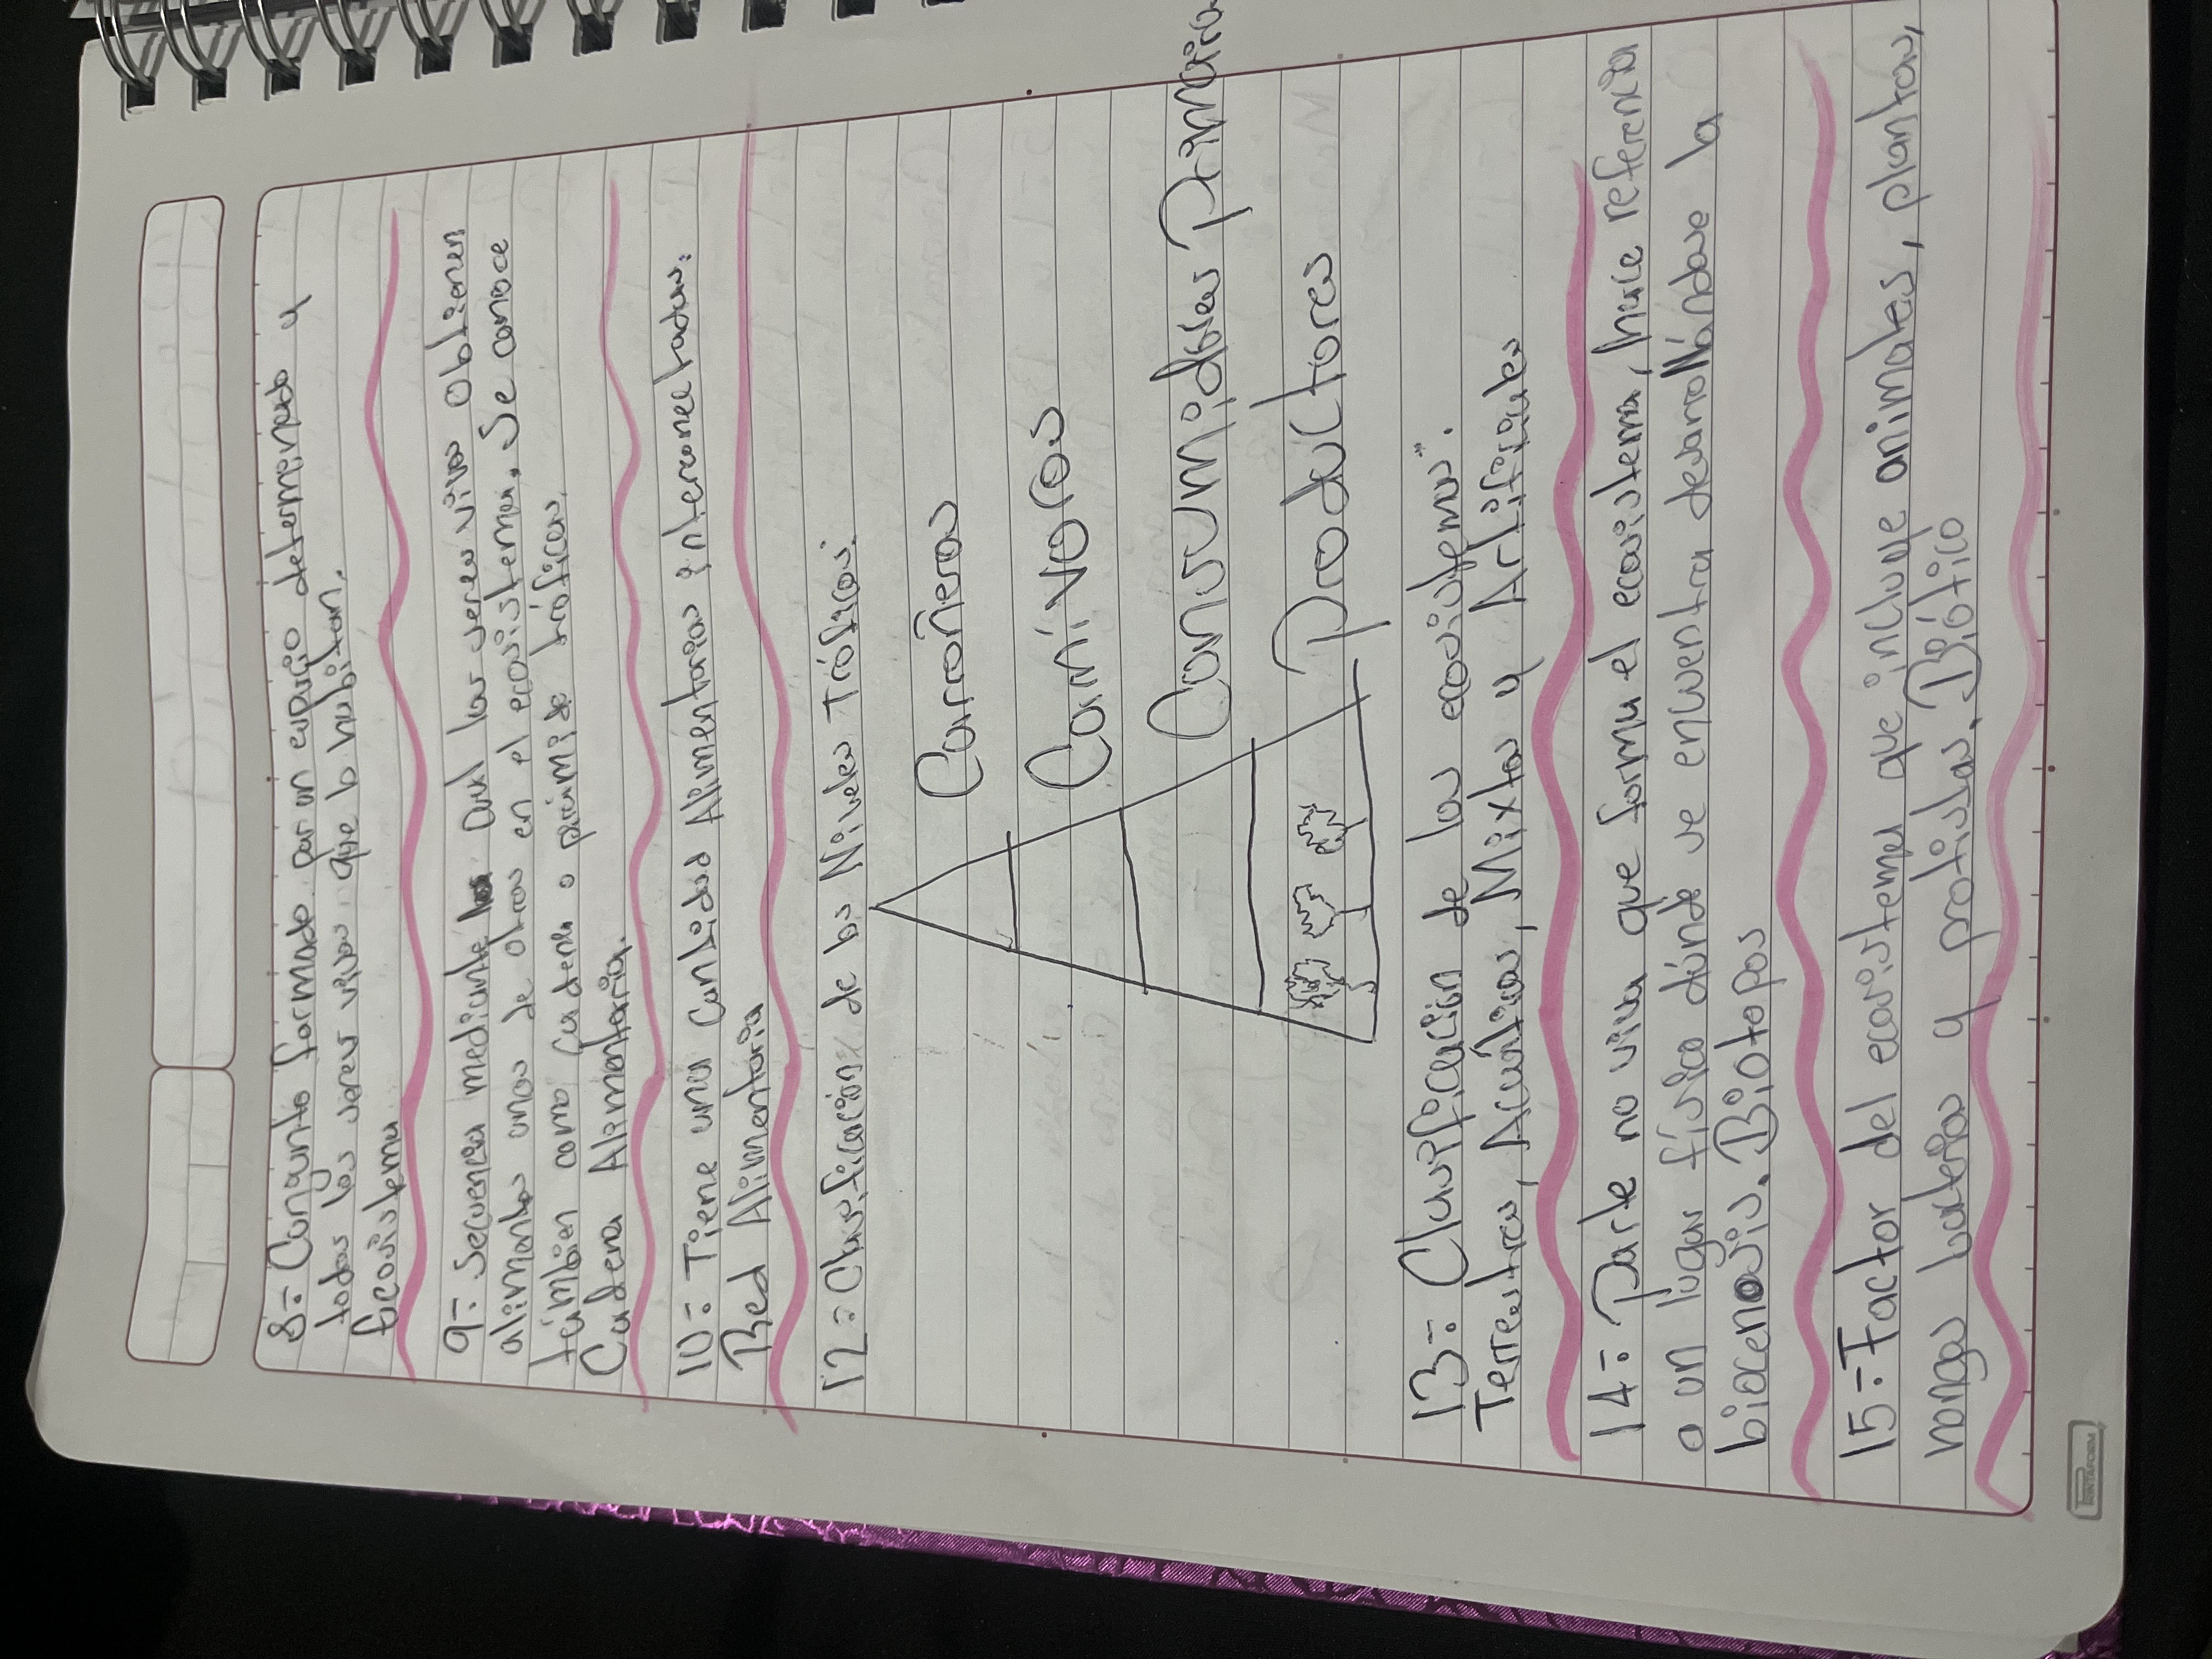 8:- Conjunto formado por un espacio determinado y
todos los seres vivos que lo habitan.
Ecosistema
9:- Secuencia mediante la cual los seres vivos obtienen
alimentos unos de otros en el ecosistema, se conoce
también como cadena o pirámide tróficas.
Cadena Alimentaria.
10:- Tiene una cantidad Alimentarias interconectadas:
Red Alimentaria
12:- Clasificación de los Niveles Tróficos:
Carroñeros
Carnívoros
Consumidores Primarios
Productores
13:- Clasificación de los ecosistemas".
Terrestres, Acuáticos, Mixtos y Artificiales
14:- Parte no viva que forma el ecosistema, hace referencia
a un lugar físico dónde se encuentra desarrollándose la
biocenosis. Biotopos
15:- Factor del ecosistema que incluye animales, plantas,
hongos bacterias y protistas. Biótico
PRINTAFORM